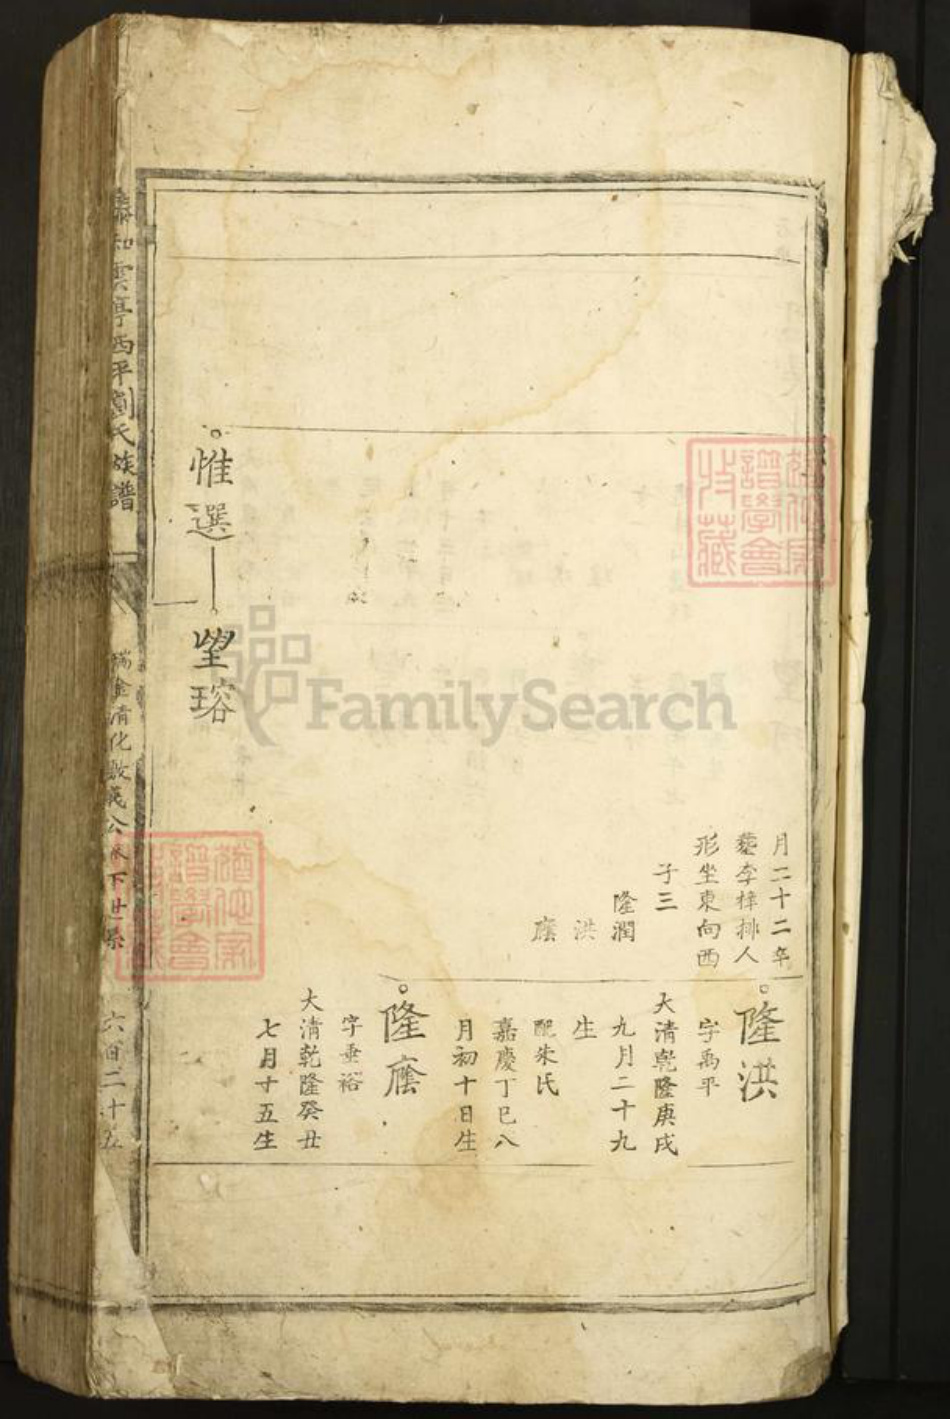 月二十二卒
葬李梓排人
形坐東向西
子三
隆潤
洪
廕
隆洪
字禹平
大清乾隆庚戌
九月二十九
生
配朱氏
嘉慶丁巳八
月初十日生
隆廕
字垂裕
大清乾隆癸丑
七月十五生
惟選
望瑢
泰和雲亭西平劉氏族譜
瑞金清化 公 下世系
六百二十五
譜學會
收藏
譜學會
FamilySearch